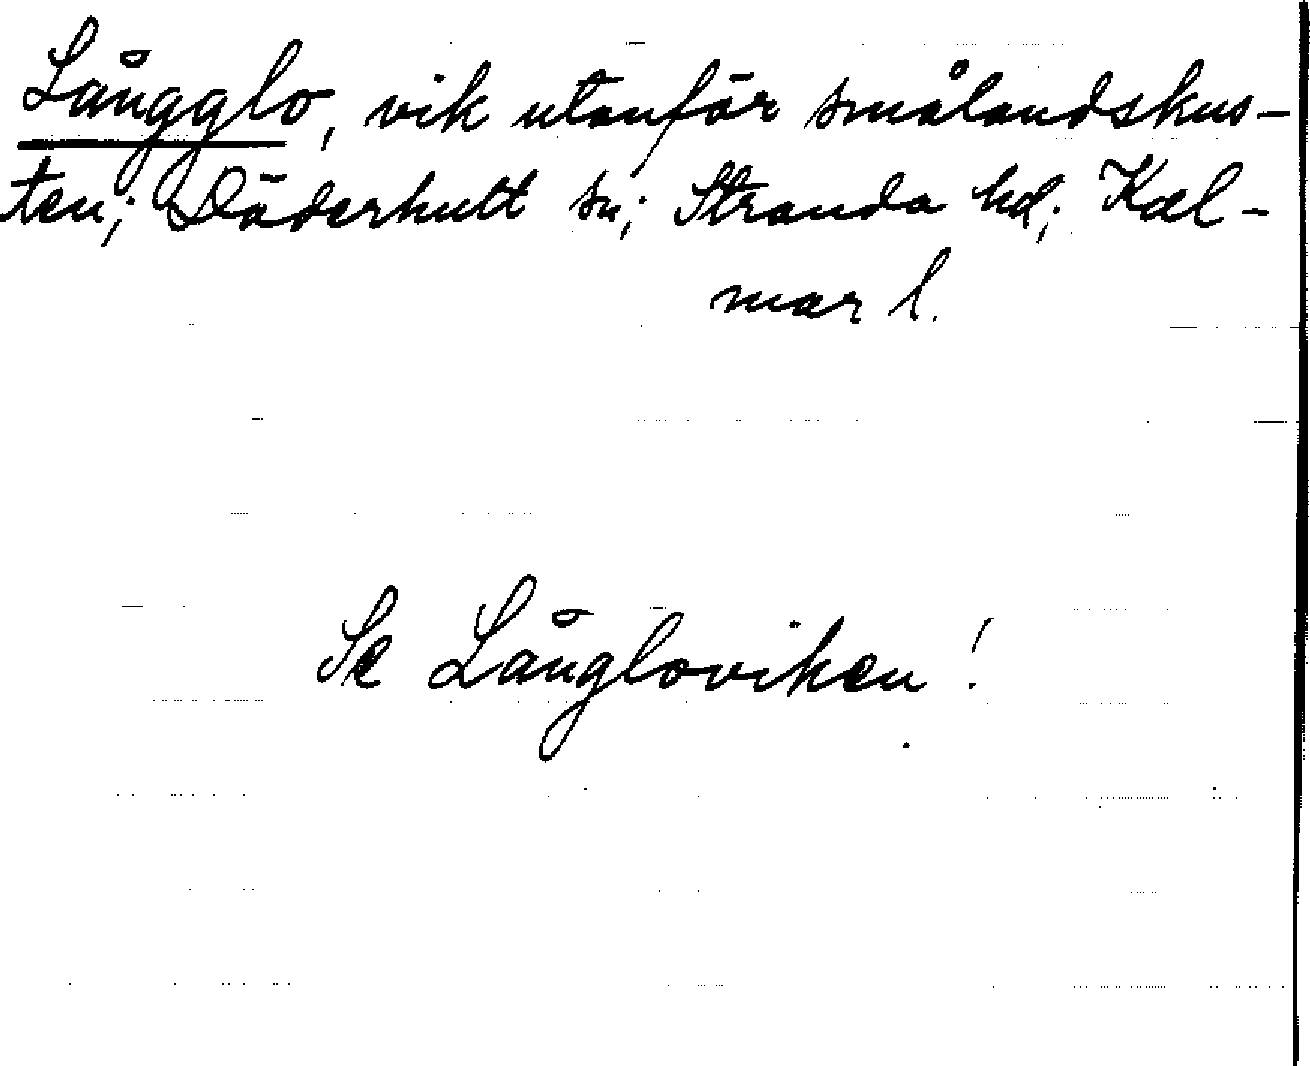 Långglo, vik utanför smålandskus-
ten; Döderhult sn; Stranda hd; Kal-
mar l.
Se Långloviken!